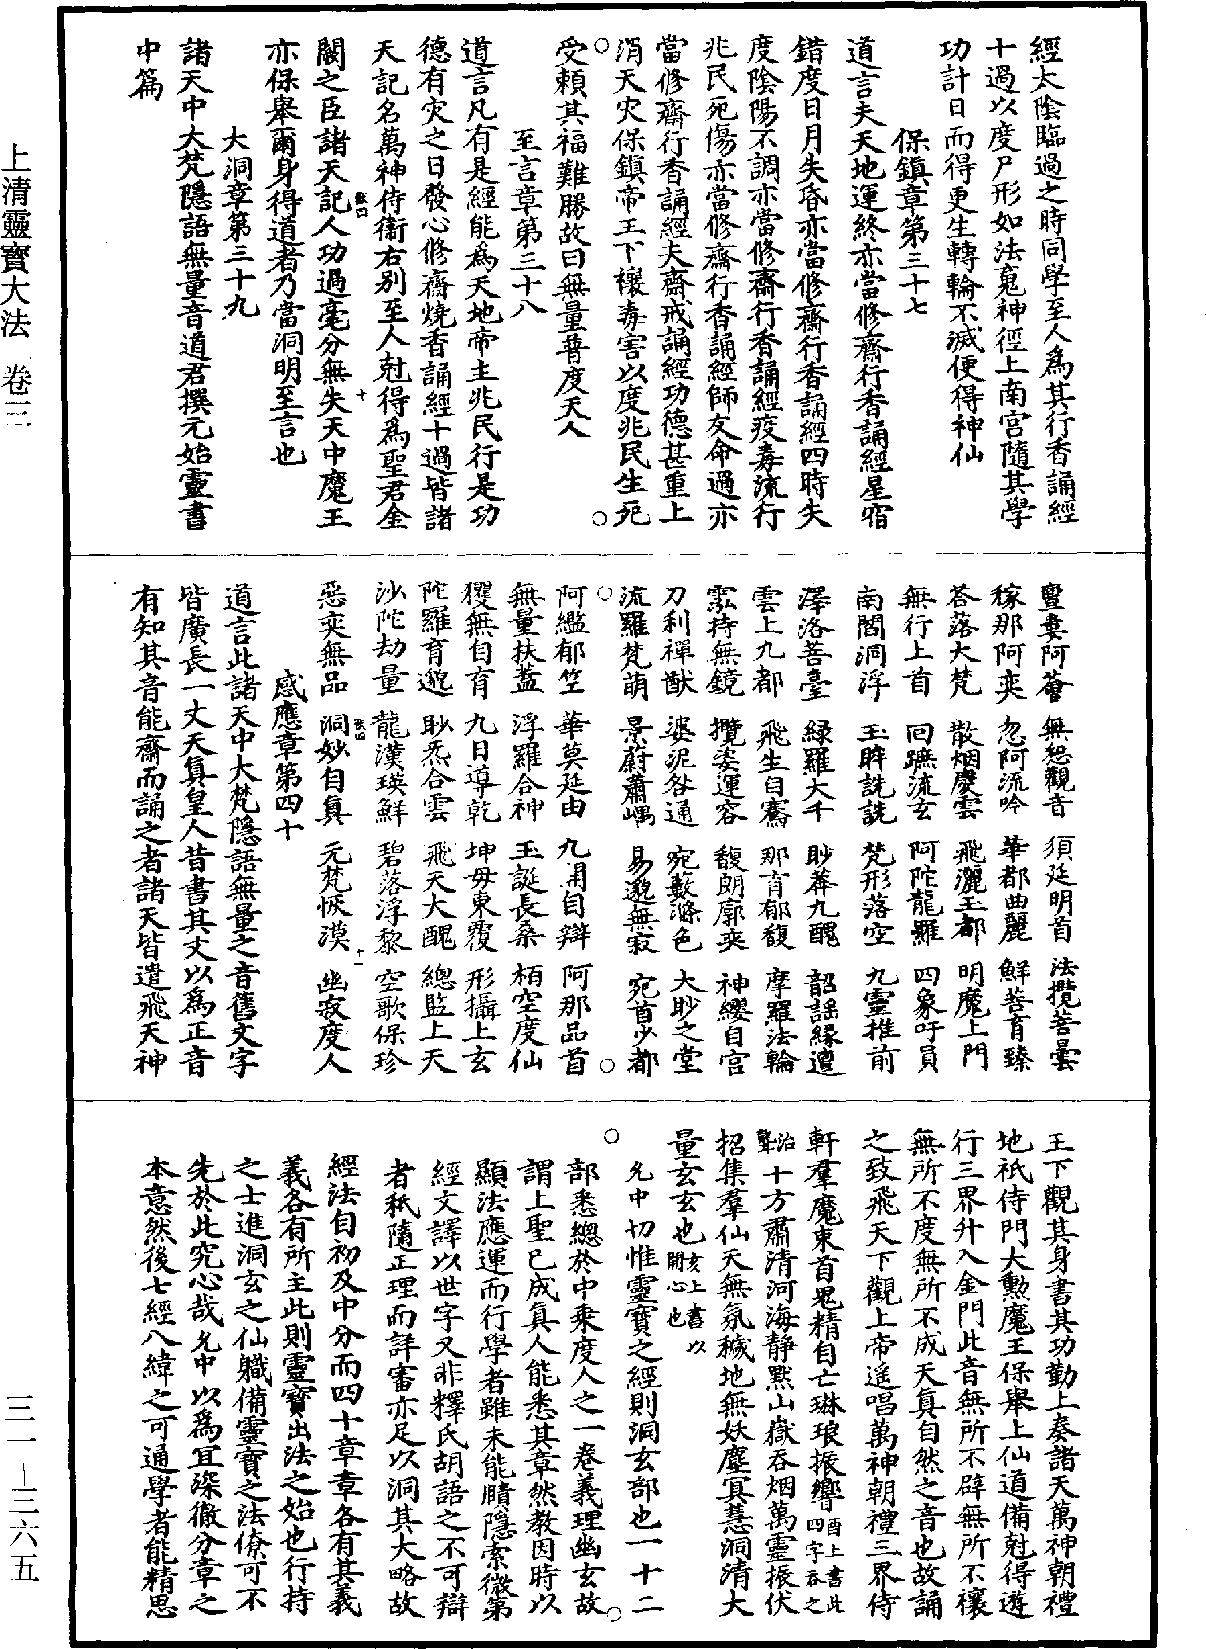 經太陰臨過之時同學至人爲其行香誦經
十過以度尸形如法鬼神徑上南宮隨其學
功計日而得更生轉輪不滅便得神仙
保鎮章第三十七
道言夫天地運終亦當修齋行香誦經星宿
錯度日月失昏亦當修齋行香誦經四時失
度陰陽不調亦當修齋行香誦經疫毒流行
兆民死傷亦當修齋行香誦經師友命過亦
當修齋行香誦經夫齋戒誦經功德甚重上
消天灾保鎮帝王下禳毒害以度兆民生死
受賴其福難勝故曰無量普度天人
至言章第三十八
道言凡有是經能爲天地帝主兆民行是功
德有灾之日發心修齋燒香誦經十過皆諸
天記名萬神侍衞右別至人尅得爲聖君金
闕之臣諸天記人功過毫分無失天中魔王
亦保舉爾身得道者乃當洞明至言也
大洞章第三十九
諸天中大梵隱語無量音道君撰元始靈書
中篇
亶婁阿薈 無惒觀音 須延明首 法攬菩曇
稼那阿奕 忽阿流吟 華都曲麗 鮮菩育臻
荅落大梵 散烟慶雲 飛灑玉都 明魔上門
無行上首 回蹠流玄 阿陀龍羅 四象吁員
南閻洞浮 玉眸詵詵 梵形落空 九靈推前
澤洛菩臺 緑羅大千 眇莽九醜 韶謡緣邅
雲上九都 飛生自騫 那育郁馥 摩羅法輪
霐持無鏡 攬姿運容 馥朗廓奕 神纓自宮
刀利禪猷 婆泥咎通 宛藪滌色 大眇之堂
流羅梵萌 景蔚蕭嵎 易邈無寂 宛首少都
阿䌰郁竺 華莫延由 九開自辯 阿那品首
無量扶蓋 浮羅合神 玉誕長桑 栢空度仙
玃無自育 九日導乾 坤母東覆 形攝上玄
陀羅育邈 眇炁合雲 飛天大醜 總監上天
沙陀劫量 龍漢瑛鮮 碧落浮黎 空歌保珍
惡奕無品 洞妙自真 元梵恢漠 幽寂度人
感應章第四十
道言此諸天中大梵隱語無量之音舊文字
皆廣長一丈天真皇人昔書其文以爲正音
有知其音能齋而誦之者諸天皆遣飛天神
王下觀其身書其功勤上奏諸天萬神朝禮
地祇侍門大勲魔王保舉上仙道備尅得遊
行三界升入金門此音無所不辟無所不禳
無所不度無所不成天真自然之音也故誦
之致飛天下觀上帝遥唱萬神朝禮三界侍
軒羣魔東首鬼精自亡琳琅振響酉上書此四字吞之
治聾十方肅清河海静黙山嶽吞烟萬靈振伏
招集羣仙天無氛穢地無妖塵冥慧洞清大
量玄玄也亥上書以開心也
允中切惟靈寶之經則洞玄部也一十二
部悉總於中乘度人之一卷義理幽玄故
謂上聖已成真人能悉其章然教因時以
顯法應運而行學者雖未能賾隱索微第
經文譯以世字又非釋氏胡語之不可辯
者秖隨正理而詳審亦足以洞其大略故
經法自初及中分而四十章章各有其義
義各有所主此則靈寶出法之始也行持
之士進洞玄之仙職備靈寶之法僚可不
先於此究心哉允中以爲宜深徹分章之
本意然後七經八緯之可通學者能精思
上清靈寶大法 卷三
三一—三六五